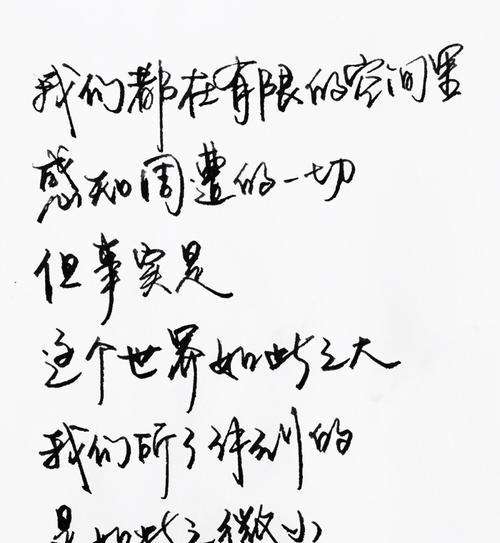 我们都在有限的空间里
感知周遭的一切
但事实是
这个世界如此之大
我们所了解到的
是如此之微小